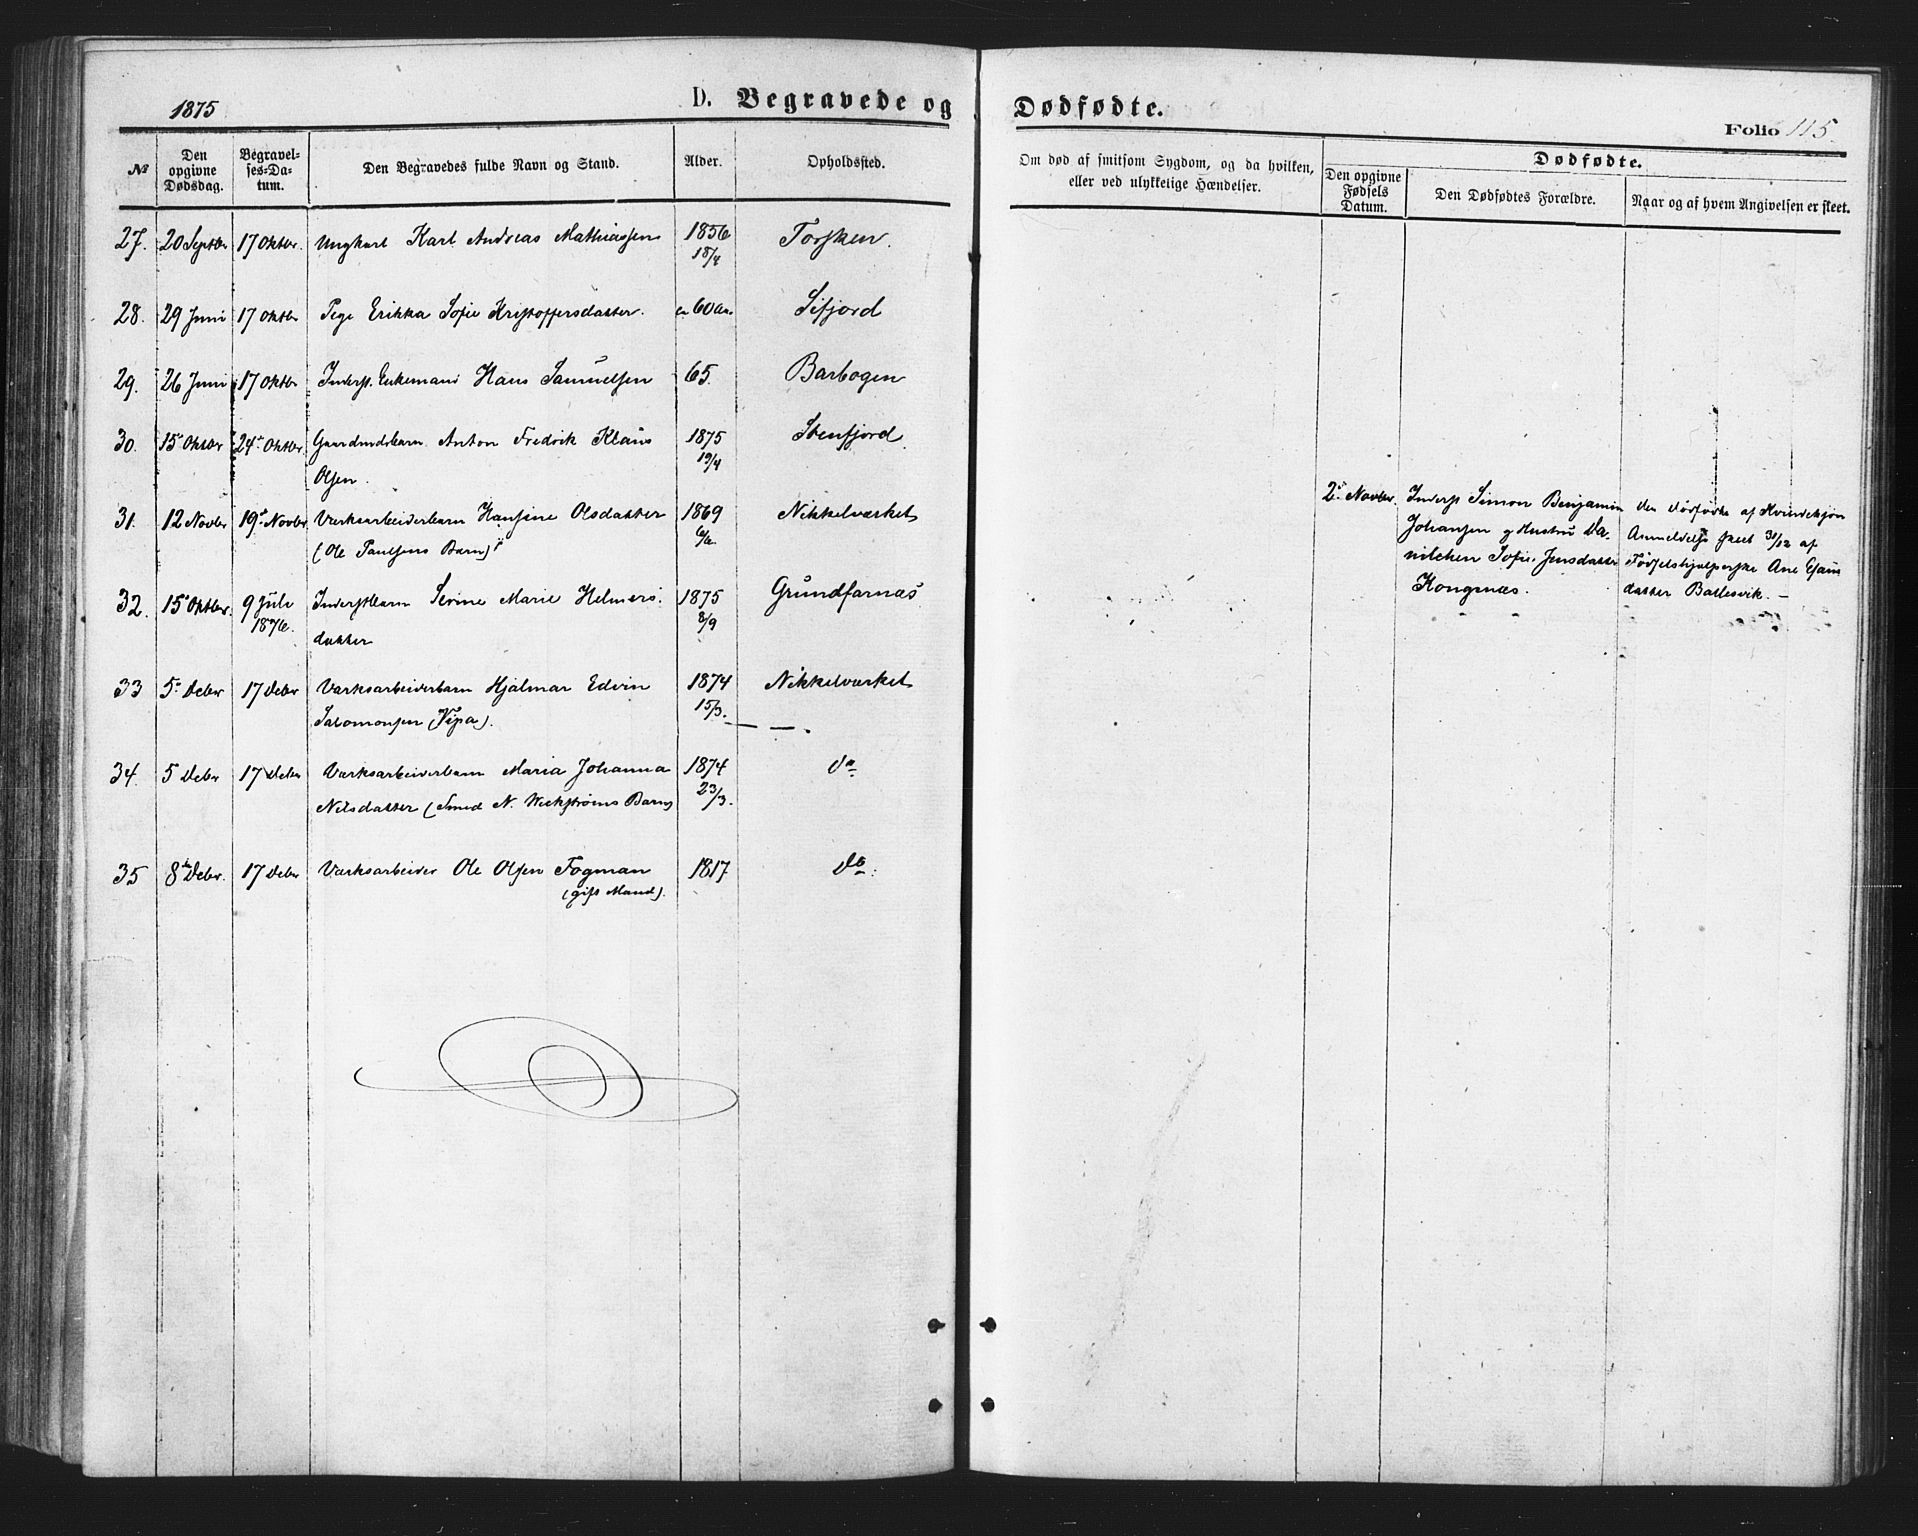 1875
D. Begravede og Dødfødte.
Folio 115
№
Den opgivne Dødsdag.
Begravelses-Datum.
Den Begravedes fulde Navn og Stand.
Alder.
Opholdssted.
Om død af smitsom Sygdom, og da hvilken, eller ved ulykkelige Hændelser.
Dødfødte.
Den opgivne Fødsels Datum.
Den Dødfødtes Forældre.
Naar og af hvem Angivelsen er skeet.
27. 20 Septbr 17 Oktbr Ungkarl Karl Andreas Mathiassen 1856 Torsken.
18/4
28. 29 Juni 17 Oktbr Pige Erikka Sofie Kristoffersdatter. ca 60 Aar. Sifjord
29. 26 Juni 17 Oktbr Inderst. Enkemand Hans Samuelsen 65. Barbogen
30. 15 Oktbr 24 Oktbr Gaardmdsbarn Anton Fredrik Klaus 1875 Stenfjord
Olsen. 19/4
31. 12 Novbr 19 Novbr Værksarbeiderbarn Hansine Olsdatter 1869 Nikkelværket
(Ole Paulsens Barn)
32. 15 Oktbr. 9 Juli Inderstbarn Serine Marie Helmers- 1875 Grundfarnæs
1876. datter 8/9
33 5 Decbr 17 Decbr Værksarbeiderbarn Hjalmar Edvin 1874 Nikkelværket
Salomonsen (Vipa). 15/3.
34. 5 Decbr 17 Decbr Værksarbeiderbarn Maria Johanna 1874 do
Nilsdatter (Smed N. Weckstrøms Barn) 23/3.
35 8 Decbr. 17 Decbr Værksarbeider Ole Olsen Fogman 1817 do
(gift Mand).
2 Novbr. Inderst Simon Benjamin
Johansen og Hustru Da-
nilchen Sofie Jensdatter
Kongsnæs.
den dødfødte af Kvindekjøn
Anmeldelse skeet 31/12 af
Fødselshjælperske Ane Esaias
datter Ballesvik. —